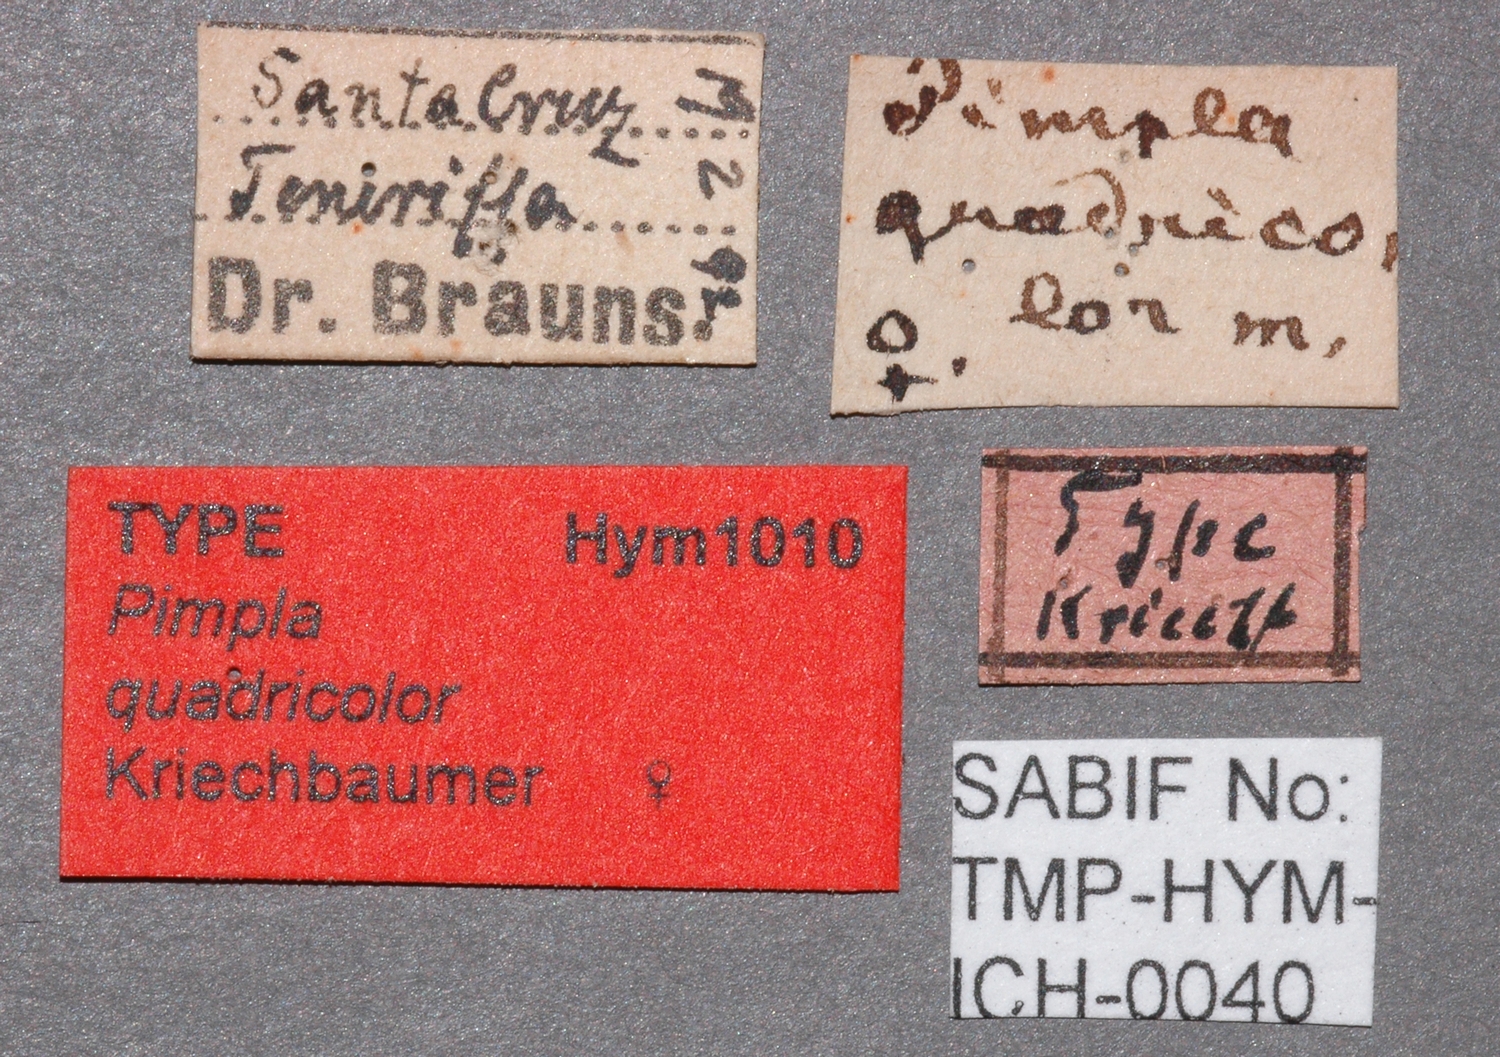 Santa Cruz
Teneriffa
Dr. Brauns.
2
Pimpla
quadrico,
lor m,
♀.
TYPE Hym1010
Pimpla
quadricolor
Kriechbaumer ♀
Type
Kriechb
SABIF No:
TMP-HYM-
ICH-0040